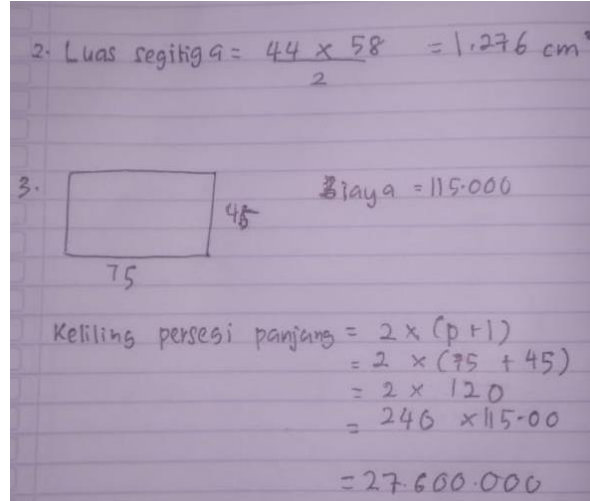 2. Luas segitiga = 44 x 58 / 2 = 1.276 cm²
3. Biaya = 115.000
45
75
Keliling persegi panjang = 2 x (p + l)
= 2 x (75 + 45)
= 2 x 120
= 240 x 115.00
= 27.600.000